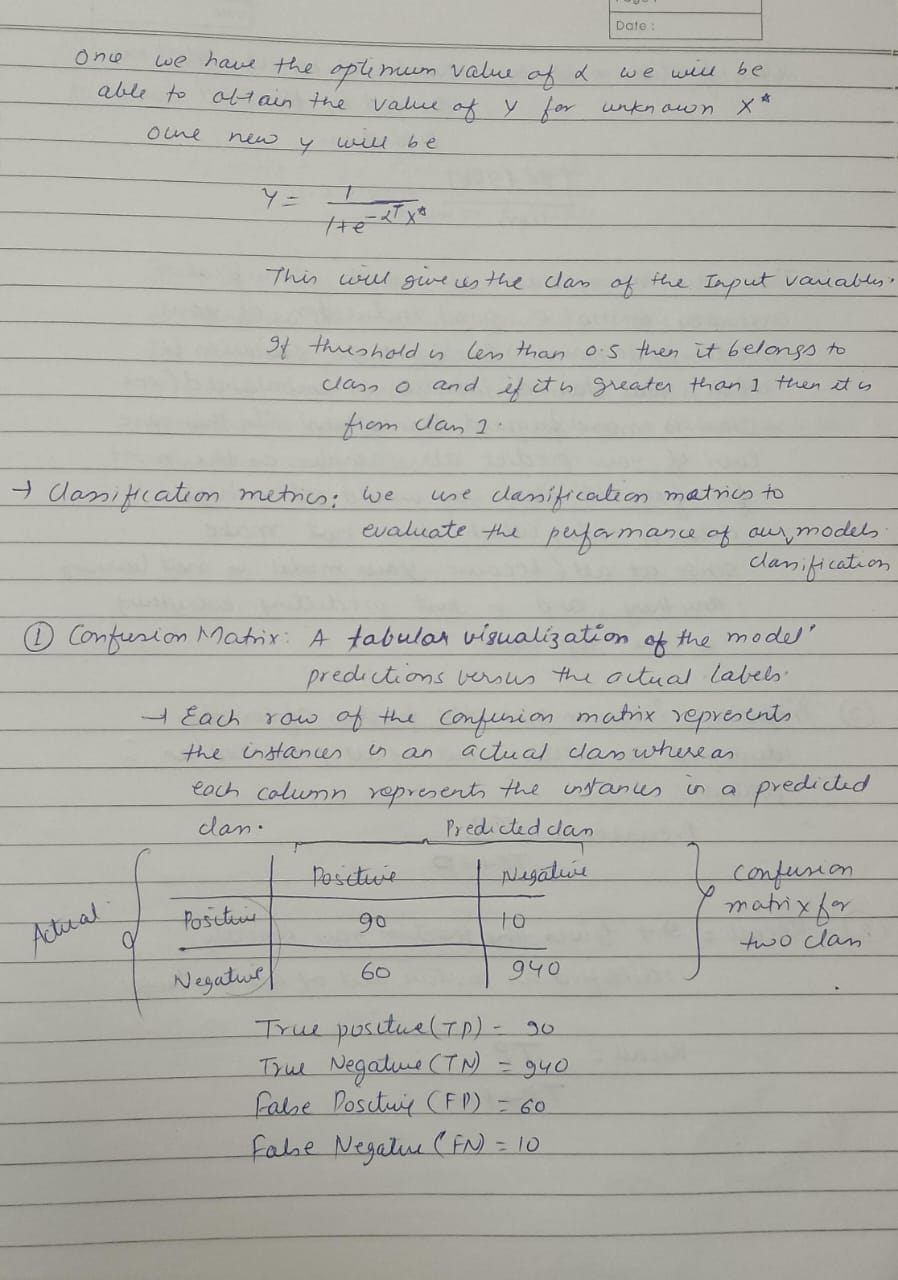 Date :
Once we have the optimum value of α we will be
able to obtain the value of y for unknown X*
our new y will be
Y = 1 / 1+e^-αᵀX*
This will give us the class of the Input variables.
If threshold is less than 0.5 then it belongs to
class 0 and if it is greater than 1 then it is
from class 1.
→ Classification metrics: We use classification metrics to
evaluate the performance of our models
classification
① Confusion Matrix: A tabular visualization of the model
predictions versus the actual labels.
→ Each row of the confusion matrix represents
the instances in an actual class whereas
each column represents the instances in a predicted
class.
Predicted class
Positive Negative
Actual
Positive 90 10
Negative 60 940
Confusion
matrix for
two class
True positive (TP) - 90
True Negative (TN) = 940
False Positive (FP) = 60
False Negative (FN) = 10